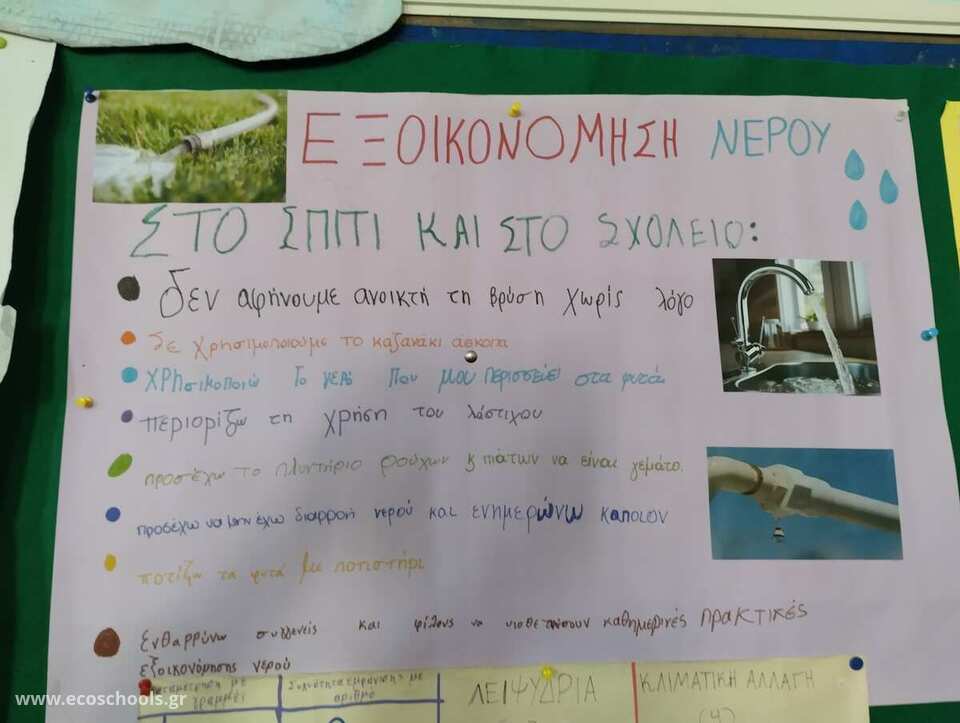 ΕΞΟΙΚΟΝΟΜΗΣΗ ΝΕΡΟΥ
ΣΤΟ ΣΠΙΤΙ ΚΑΙ ΣΤΟ ΣΧΟΛΕΙΟ:
δεν αφήνουμε ανοικτή τη βρύση χωρίς λόγο
δε χρησιμοποιούμε το καζανάκι άσκοπα
χρησικοποιώ το νερό που μου περισσεύει στα φυτά
περιορίζω τη χρήση του λάστιχου
προσέχω το πλυντήριο ρούχων & πιάτων να είναι γεμάτο.
προσέχω να μην έχω διαρροή νερού και ενημερώνω κάποιον
ποτίζω τα φυτά με ποτιστήρι
ενθαρρύνω συγγενείς και φίλους να υιοθετήσουν καθημερινές πρακτικές
εξοικονόμησης νερού
με
γραμμές
Συχνότητα εμφάνισης με
αριθμό
ΛΕΙΨΥΔΡΙΑ
ΚΛΙΜΑΤΙΚΗ ΑΛΛΑΓΗ
(4)
www.ecoschools.gr